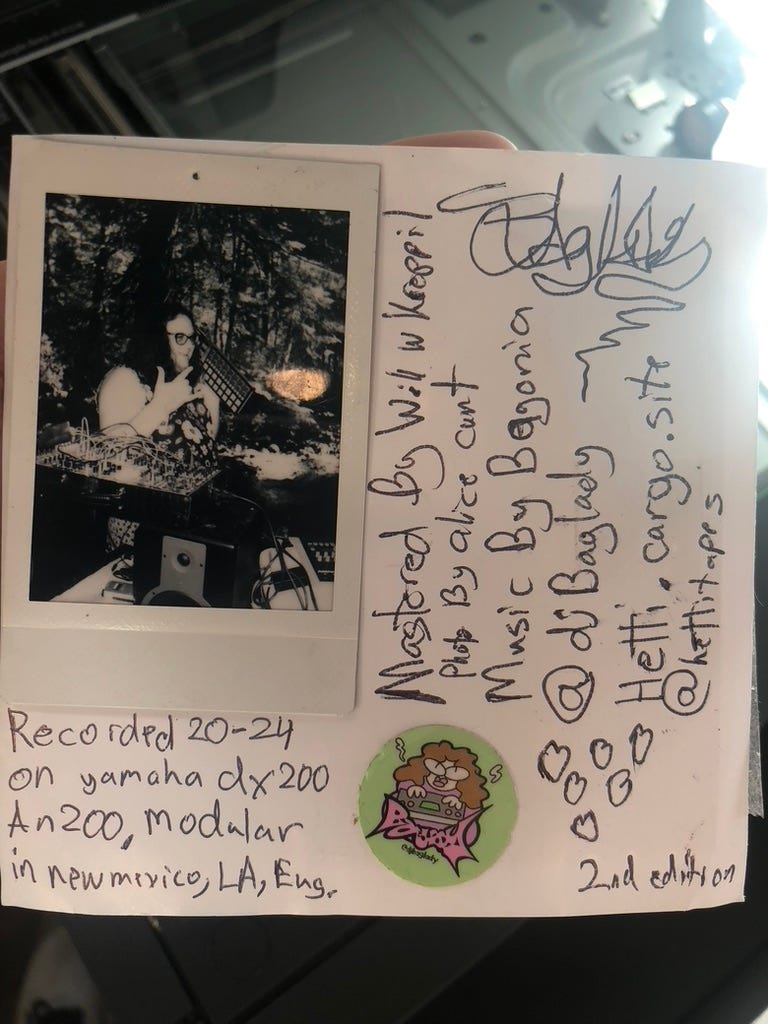 Mastered By Will W
Photo By alice cunt
Music By Begonia
@djBaglady
Hetti.cargo.site
@hettitapes
Bag Lady
Recorded 20-24
on yamaha dx200
An200, Modular
in new mexico, LA, Eng.
@djbaglady
2nd edition